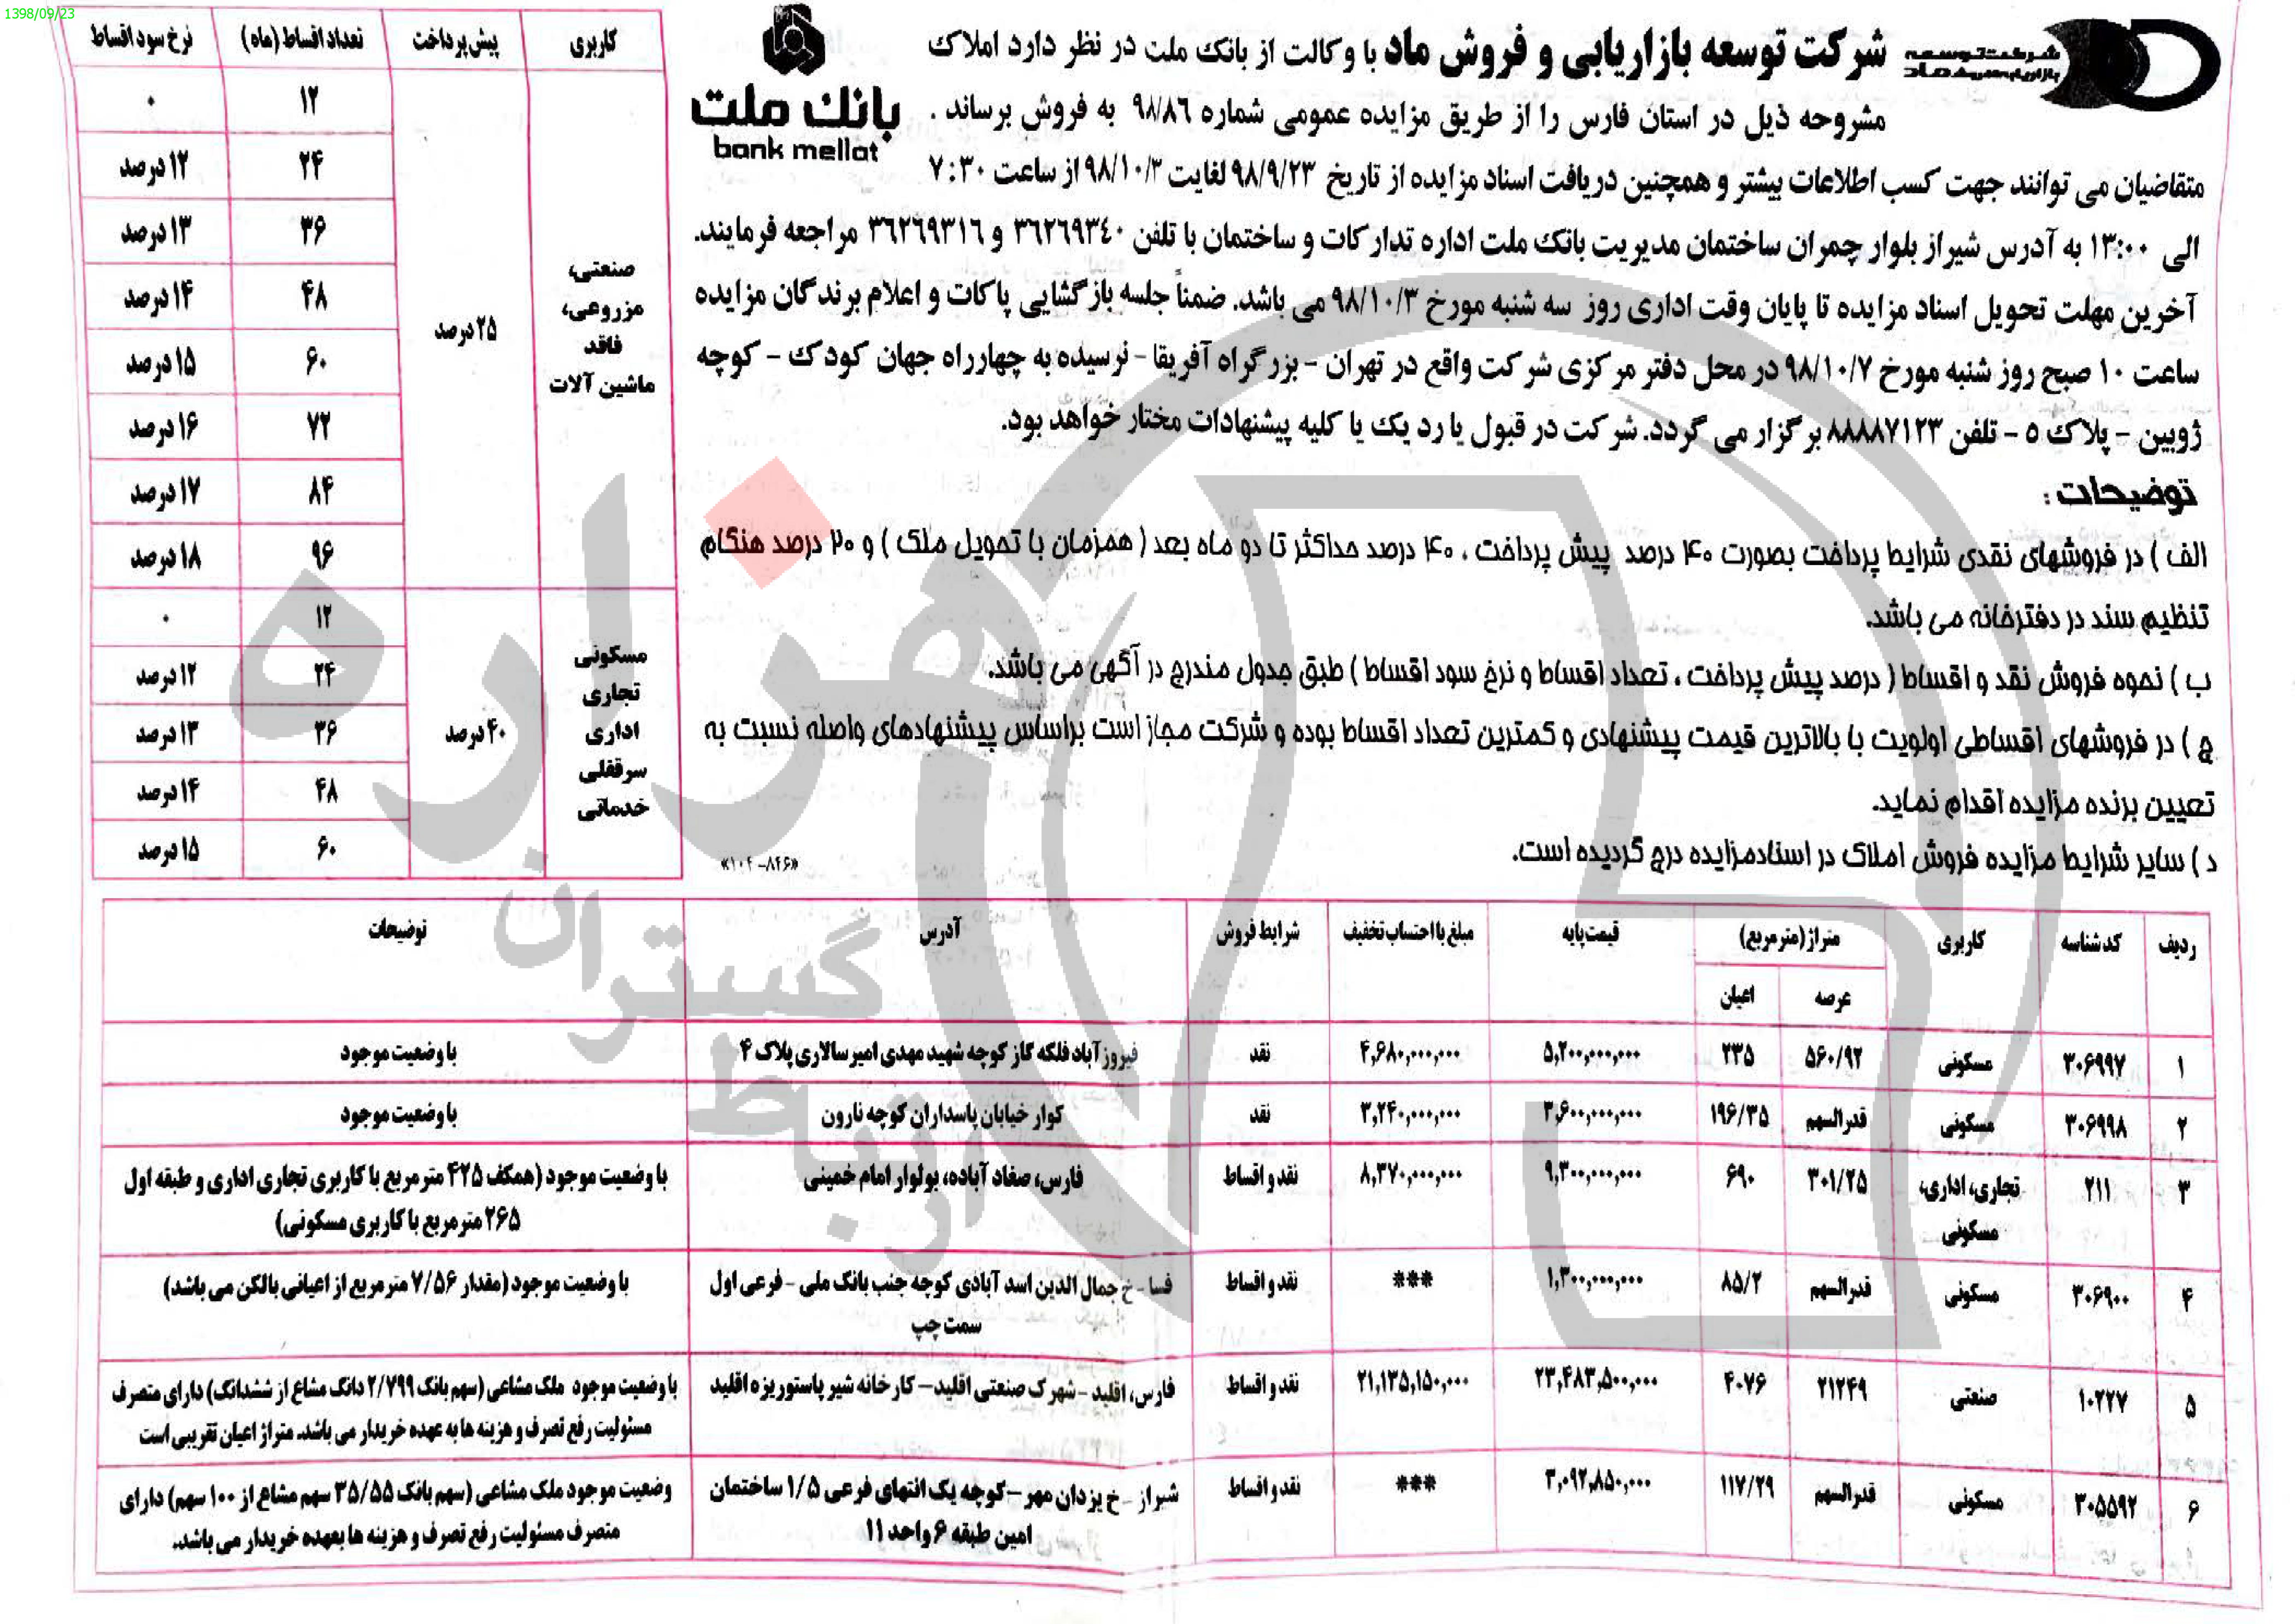 1398/09/23
شرکت توسعه
بازاریابی و فروش ماد
شرکت توسعه بازاریابی و فروش ماد با وکالت از بانک ملت در نظر دارد املاک
مشروحه ذیل در استان فارس را از طریق مزایده عمومی شماره ۹۸/۸۶ به فروش برساند .
بانک ملت
bank mellat
متقاضیان می توانند جهت کسب اطلاعات بیشتر و همچنین دریافت اسناد مزایده از تاریخ ۹۸/۹/۲۳ لغایت ۹۸/۱۰/۳ از ساعت ۷:۳۰
الی ۱۳:۰۰ به آدرس شیراز بلوار چمران ساختمان مدیریت بانک ملت اداره تدارکات و ساختمان با تلفن ۳۶۲۶۹۳۴۰ و ۳۶۲۶۹۳۱۶ مراجعه فرمایند.
آخرین مهلت تحویل اسناد مزایده تا پایان وقت اداری روز سه شنبه مورخ ۹۸/۱۰/۳ می باشد. ضمناً جلسه بازگشایی پاکات و اعلام برندگان مزایده
ساعت ۱۰ صبح روز شنبه مورخ ۹۸/۱۰/۷ در محل دفتر مرکزی شرکت واقع در تهران - بزرگراه آفریقا - نرسیده به چهارراه جهان کودک - کوچه
ژوبین - پلاک ۵ - تلفن ۸۸۸۸۷۱۲۳ برگزار می گردد. شرکت در قبول یا رد یک یا کلیه پیشنهادات مختار خواهد بود.
توضیحات :
الف ) در فروشهای نقدی شرایط پرداخت بصورت ۴۰ درصد پیش پرداخت ، ۴۰ درصد حداکثر تا دو ماه بعد ( همزمان با تحویل ملک ) و ۲۰ درصد هنگام
تنظیم سند در دفترخانه می باشد.
ب ) نحوه فروش نقد و اقساط ( درصد پیش پرداخت ، تعداد اقساط و نرخ سود اقساط ) طبق جدول مندرج در آگهی می باشد.
ج ) در فروشهای اقساطی اولویت با بالاترین قیمت پیشنهادی و کمترین تعداد اقساط بوده و شرکت مجاز است براساس پیشنهادهای واصله نسبت به
تعیین برنده مزایده اقدام نماید.
د ) سایر شرایط مزایده فروش املاک در اسنادمزایده درج گردیده است.
«۱۰۴-۸۴۶»
کاربری پیش پرداخت تعداد اقساط (ماه) نرخ سود اقساط
صنعتی،
مزروعی،
فاقد
ماشین آلات
۲۵ درصد
۱۲ ۰
۲۴ ۱۲ درصد
۳۶ ۱۳ درصد
۴۸ ۱۴ درصد
۶۰ ۱۵ درصد
۷۲ ۱۶ درصد
۸۴ ۱۷ درصد
۹۶ ۱۸ درصد
مسکونی
تجاری
اداری
سرقفلی
خدماتی
۴۰ درصد
۱۲ ۰
۲۴ ۱۲ درصد
۳۶ ۱۳ درصد
۴۸ ۱۴ درصد
۶۰ ۱۵ درصد
ردیف کد شناسه کاربری متراژ (مترمربع) قیمت پایه مبلغ با احتساب تخفیف شرایط فروش آدرس توضیحات
عرصه اعیان
۱ ۳۰۶۹۹۷ مسکونی ۵۶۰/۹۲ ۲۳۵ ۵,۲۰۰,۰۰۰,۰۰۰ ۴,۶۸۰,۰۰۰,۰۰۰ نقد فیروزآباد فلکه گاز کوچه شهید مهدی امیرسالاری پلاک ۴ با وضعیت موجود
۲ ۳۰۶۹۹۸ مسکونی قدرالسهم ۱۹۶/۳۵ ۳,۶۰۰,۰۰۰,۰۰۰ ۳,۲۴۰,۰۰۰,۰۰۰ نقد کوار خیابان پاسداران کوچه نارون با وضعیت موجود
۳ ۲۱۱ تجاری، اداری، ۳۰۱/۲۵ ۶۹۰ ۹,۳۰۰,۰۰۰,۰۰۰ ۸,۳۷۰,۰۰۰,۰۰۰ نقد و اقساط فارس، صغاد آباده، بولوار امام خمینی با وضعیت موجود (همکف ۴۲۵ مترمربع با کاربری تجاری اداری و طبقه اول
مسکونی ۲۶۵ مترمربع با کاربری مسکونی)
۴ ۳۰۶۹۰۰ مسکونی قدرالسهم ۸۵/۲ ۱,۳۰۰,۰۰۰,۰۰۰ *** نقد و اقساط فسا - خ جمال الدین اسد آبادی کوچه جنب بانک ملی - فرعی اول با وضعیت موجود (مقدار ۷/۵۶ مترمربع از اعیانی بالکن می باشد)
سمت چپ
۵ ۱۰۲۲۷ صنعتی ۲۱۲۴۹ ۴۰۷۶ ۲۳,۴۸۳,۵۰۰,۰۰۰ ۲۱,۱۳۵,۱۵۰,۰۰۰ نقد و اقساط فارس، اقلید - شهرک صنعتی اقلید - کارخانه شیر پاستوریزه اقلید با وضعیت موجود ملک مشاعی (سهم بانک ۲/۷۹۹ دانگ مشاع از ششدانگ) دارای متصرف
مسئولیت رفع تصرف و هزینه ها به عهده خریدار می باشد. متراژ اعیان تقریبی است
۶ ۳۰۵۵۹۲ مسکونی قدرالسهم ۱۱۷/۲۹ ۳,۰۹۲,۸۵۰,۰۰۰ *** نقد و اقساط شیراز - خ یزدان مهر - کوچه یک انتهای فرعی ۱/۵ ساختمان وضعیت موجود ملک مشاعی (سهم بانک ۳۵/۵۵ سهم مشاع از ۱۰۰ سهم) دارای
امین طبقه ۶ واحد ۱۱ متصرف مسئولیت رفع تصرف و هزینه ها بعهده خریدار می باشد.
هزاره
گستران
ارتباط